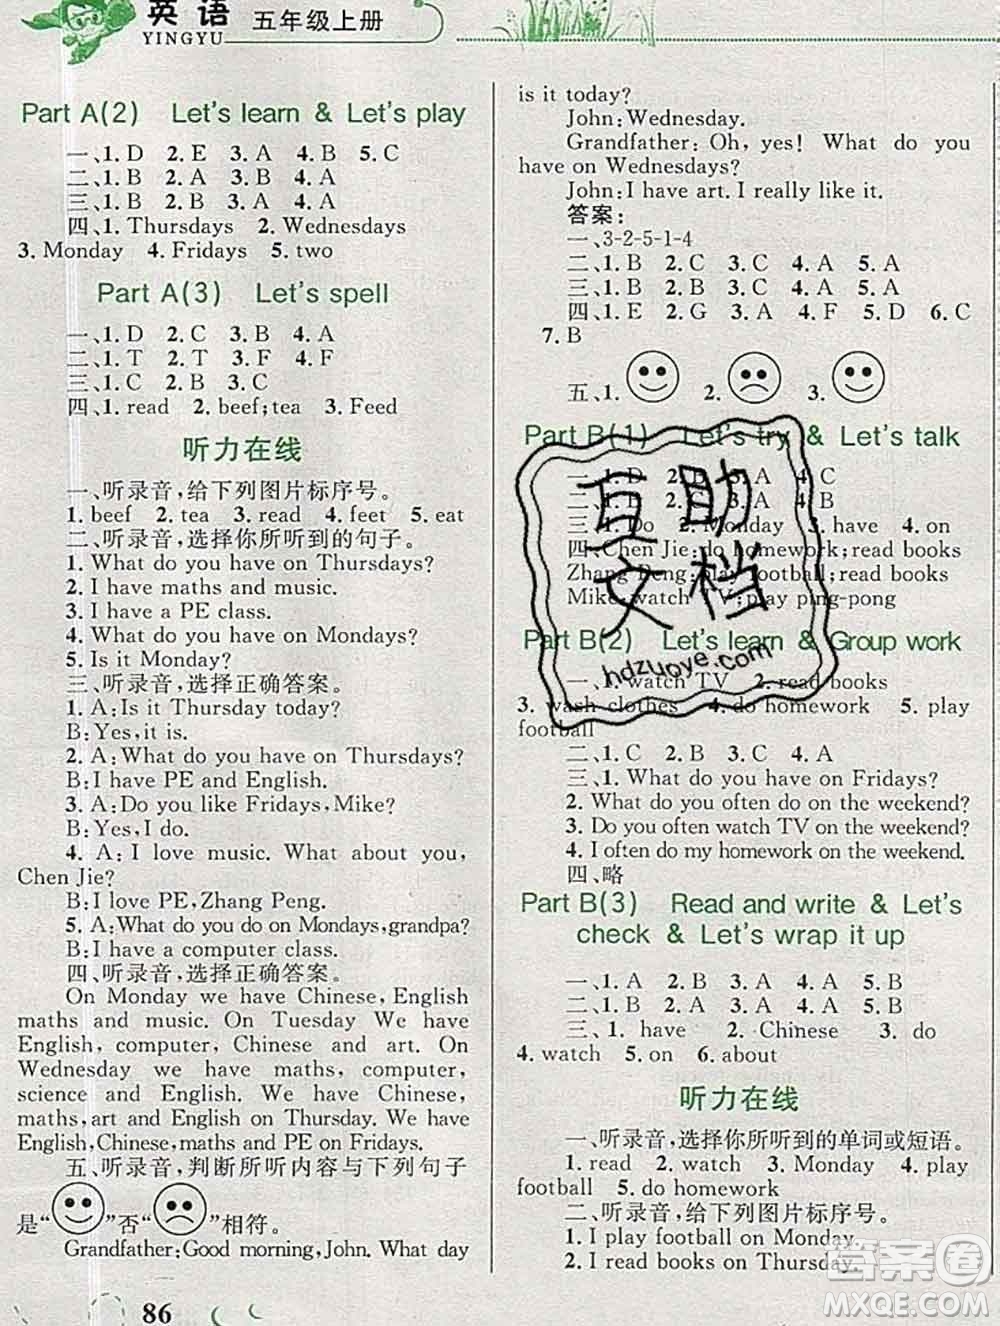 英语 五年级上册
YINGYU
Part A(2) Let's learn & Let's play
一、1. D 2. E 3. A 4. B 5. C
二、1. B 2. A 3. B 4. A
三、1. B 2. B 3. A 4. A
四、1. Thursdays 2. Wednesdays
3. Monday 4. Fridays 5. two
Part A(3) Let's spell
一、1. D 2. C 3. B 4. A
二、1. T 2. T 3. F 4. F
三、1. C 2. B 3. C
四、1. read 2. beef; tea 3. Feed
听力在线
一、听录音,给下列图片标序号。
1. beef 2. tea 3. read 4. feet 5. eat
二、听录音,选择你所听到的句子。
1. What do you have on Thursdays?
2. I have maths and music.
3. I have a PE class.
4. What do you have on Mondays?
5. Is it Monday?
三、听录音,选择正确答案。
1. A: Is it Thursday today?
B: Yes, it is.
2. A: What do you have on Thursdays?
B: I have PE and English.
3. A: Do you like Fridays, Mike?
B: Yes, I do.
4. A: I love music. What about you,
Chen Jie?
B: I love PE, Zhang Peng.
5. A: What do you do on Mondays, grandpa?
B: I have a computer class.
四、听录音,选择正确答案。
On Monday we have Chinese, English
maths and music. On Tuesday We have
English, computer, Chinese and art. On
Wednesday we have maths, computer,
science and English. We have Chinese,
maths, art and English on Thursday. We have
English, Chinese, maths and PE on Fridays.
五、听录音,判断所听内容与下列句子
是“ ”否“ ”相符。
Grandfather: Good morning, John. What day
86
is it today?
John: Wednesday.
Grandfather: Oh, yes! What do you
have on Wednesdays?
John: I have art. I really like it.
答案:
一、3-2-5-1-4
二、1. B 2. C 3. C 4. A 5. A
三、1. B 2. B 3. C 4. A 5. A
四、1. E 2. G 3. A 4. F 5. D 6. C
7. B
五、1. 2. 3.
Part B(1) Let's try & Let's talk
一、1. D 2. B 3. A 4. C
4. A 5. B
三、1. Do 2. Monday 3. have 4. on
四、Chen Jie: do homework; read books
Zhang Peng: play football; read books
Mike: watch TV; play ping-pong
Part B(2) Let's learn & Group work
一、1. watch TV 2. read books
3. wash clothes 4. do homework 5. play
football
二、1. C 2. B 3. C 4. A
三、1. What do you have on Fridays?
2. What do you often do on the weekend?
3. Do you often watch TV on the weekend?
4. I often do my homework on the weekend.
四、略
Part B(3) Read and write & Let's
check & Let's wrap it up
一、1. A 2. B 3. A 4. A 5. B
二、1. B 2. A 3. A 4. A 5. B
三、1. have 2. Chinese 3. do
4. watch 5. on 6. about
听力在线
一、听录音,选择你所听到的单词或短语。
1. read 2. watch 3. Monday 4. play
football 5. do homework
二、听录音,给下列图片标序号。
1. I play football on Monday.
2. I read books on Thursday.
互助
文档
hdzuoye.com
答案圈
MXQE.COM